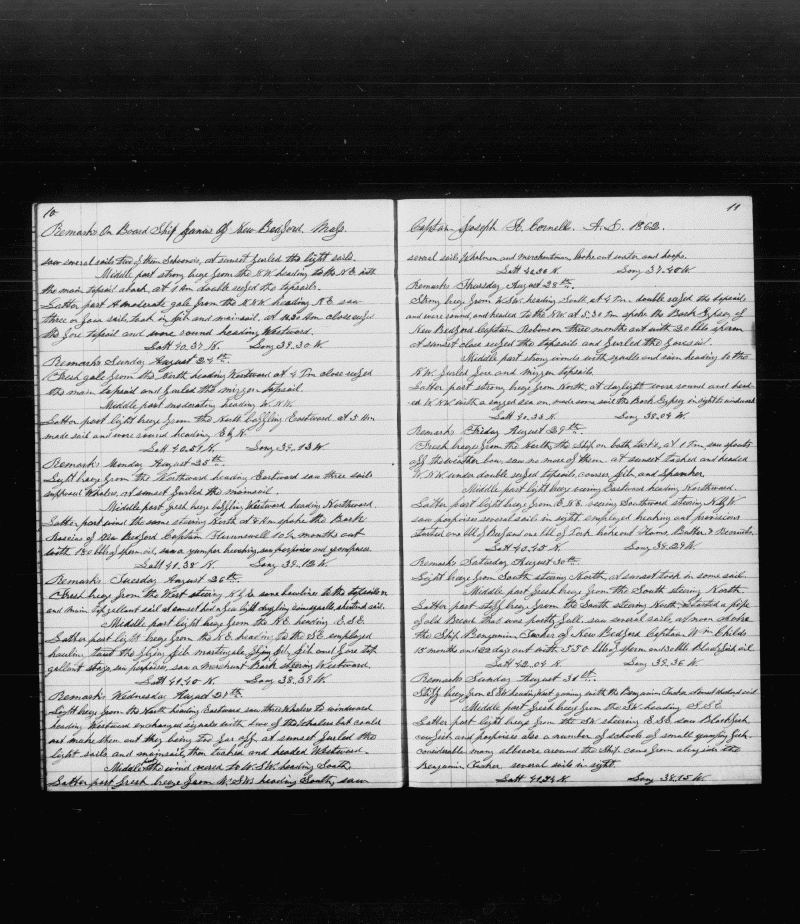 10
Remarks On Board Ship Janus Of New Bedford. Mass.
saw several sails two of them Schooners, at sunset furled the light sails.
Middle part strong breeze from the N.W. heading to the N.E. with
the main topsail aback, at 1 Am double reefed the topsails.
Latter part A moderate gale from the N.N.W. heading N.E. saw
three or four sails, took in jib and mainsail. at 11.30 Am close reefed
the fore topsail and wore round heading Westward.
Latt 40.37 N. Long 39.30 W.
Remarks Sunday August 24th.
Fresh gale from the North heading Westward at 4 Pm close reefed
the main topsail and furled the mizzen topsail.
Middle part moderating heading W.N.W.
Latter part light breeze from the North baffling Eastward. at 5 Am
made sail and wore round heading E by N.
Latt 40.51 N. Long 39.13 W.
Remarks Monday August 25th.
Light breeze from the Northward heading Eastward saw three sails
supposed Whalers, at sunset furled the mainsail.
Middle part fresh breeze baffling Westward heading Northward.
Latter part wind the same steering North at 9 Am spoke the Bark
of New Bedford Captain 10½ months out
with 180 bbls of sperm oil, saw a jumper breaching saw porpoises and grampuses.
Latt 41.38 N. Long 39.12 W.
Remarks Tuesday August 26th.
Fresh breeze from the West steering N by E some bowlines to the topsails on
and main topgallant sail at sunset had a few light drizzling rain squalls shortened sail.
Middle part light breeze from the N.E. heading E.S.E.
Latter part light breeze from the N.E. heading to the S.E. employed
hauling taut the flying jib martingale flying jib, jib and fore top
gallant stays, saw porpoises, saw a merchant Bark steering Westward.
Latt 41.40 N. Long 38.39 W.
Remarks Wednesday August 27th.
Light breeze from the North heading Eastward saw three Whalers to windward
heading Westward exchanged signals with two of the Whalers but could
not make them out they being too far off, at sunset furled the
light sails and mainsail, then tacked and headed Westward.
Middle part the wind veered to W.S.W. heading South.
Latter part fresh breeze from W.S.W. heading South, saw
11
Captain Joseph H. Cornell. A.D. 1862.
several sails Whalemen and merchantmen broke out water and hoops.
Latt 40.30 N. Long 37.40 W.
Remarks Thursday August 28th.
Strong breeze from W.S.W. heading South, at 4 Pm double reefed the topsails
and wore round, and headed to the N.W. at 5.30 Pm spoke the Bark Gypsey of
New Bedford Captain Robinson three months out with 30 bbls sperm
at sunset close reefed the topsails and furled the foresail.
Middle part strong winds with squalls and rain heading to the
N.W. furled fore and mizzen topsails.
Latter part strong breeze from North, at daylight wore round and head-
ed W.N.W. with a ragged sea on, made some sail the Bark Gypsey in sight to windward
Latt 40.33 N. Long 38.04 W.
Remarks Friday August 29th.
Fresh breeze from the North, the Ship on both tacks, at 1 Pm saw spouts
off the weather bow, saw no more of them, at sunset tacked and headed
W.N.W. under double reefed topsails, courses, jib, and spanker.
Middle part light breeze veering Eastward heading Northward.
Latter part light breeze from E.N.E. veering Southward steering N by W.
saw porpoises several sails in sight, employed breaking out provisions
started one bbl of Beef and one bbl of Pork, broke out Hams, Butter,
Latt 40.45 N. Long 39.29 W.
Remarks Saturday August 30th.
Light breeze from South steering North, at sunset took in some sail.
Middle part fresh breeze from the South steering North.
Latter part stiff breeze from the South steering North, Started a pipe
of old Bread that was partly full. saw several sails, at noon spoke
the Ship Benjamin Tucker of New Bedford Captain Wm Childs
15 months and 22 days out with 350 bbls of sperm and 30 bbls Blackfish oil.
Latt 42.04 N. Long 39.36 W.
Remarks Sunday August 31st.
Stiff breeze from S.W. heading West gaming with the Benjamin Tucker
Middle part fresh breeze from the SW. heading S.S.E.
Latter part light breeze from the SW steering E.S.E. saw Blackfish,
cowfish and porpoises also a number of schools of small jumping fish,
considerable many albecore around the Ship, came from alongside the
Benjamin Tucker several sails in sight.
Latt 41.24 N. Long 38.15 W.